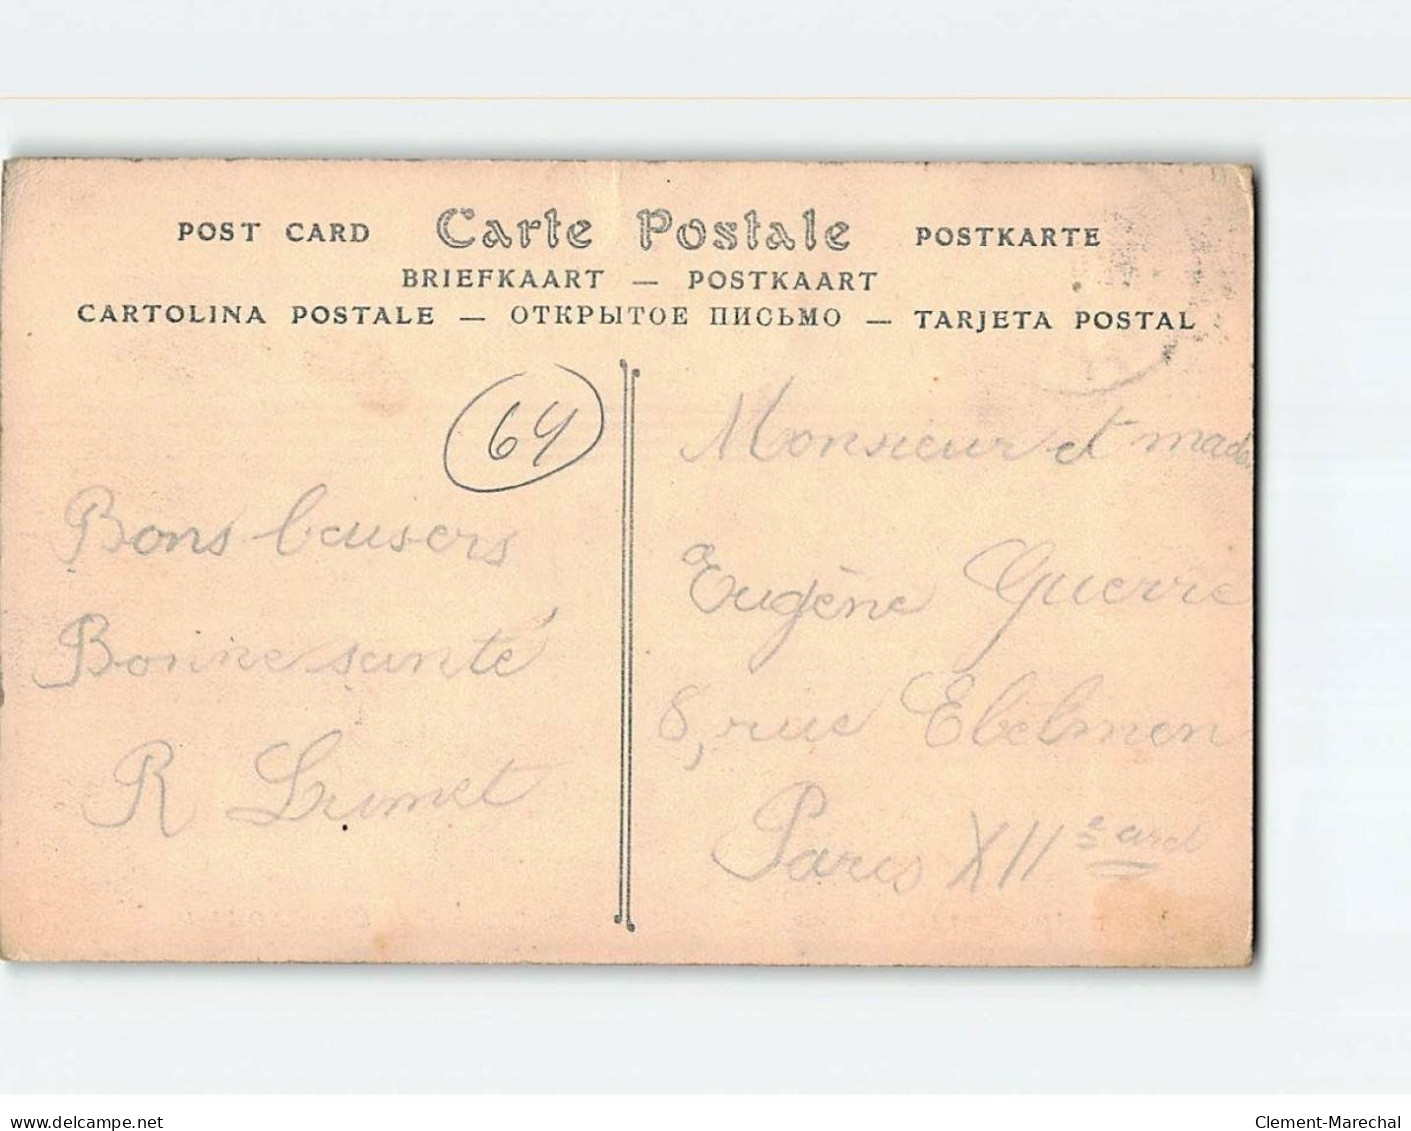 POST CARD Carte Postale POSTKARTE
BRIEFKAART — POSTKAART
CARTOLINA POSTALE — ОТКРЫТОЕ ПИСЬМО — TARJETA POSTAL
64
Bons baisers
Bonne santé
R
Monsieur et mada
Eugène Guerre
8, rue Ebelmen
Paris XIIe ard
delcampe.net
Clement-Marechal